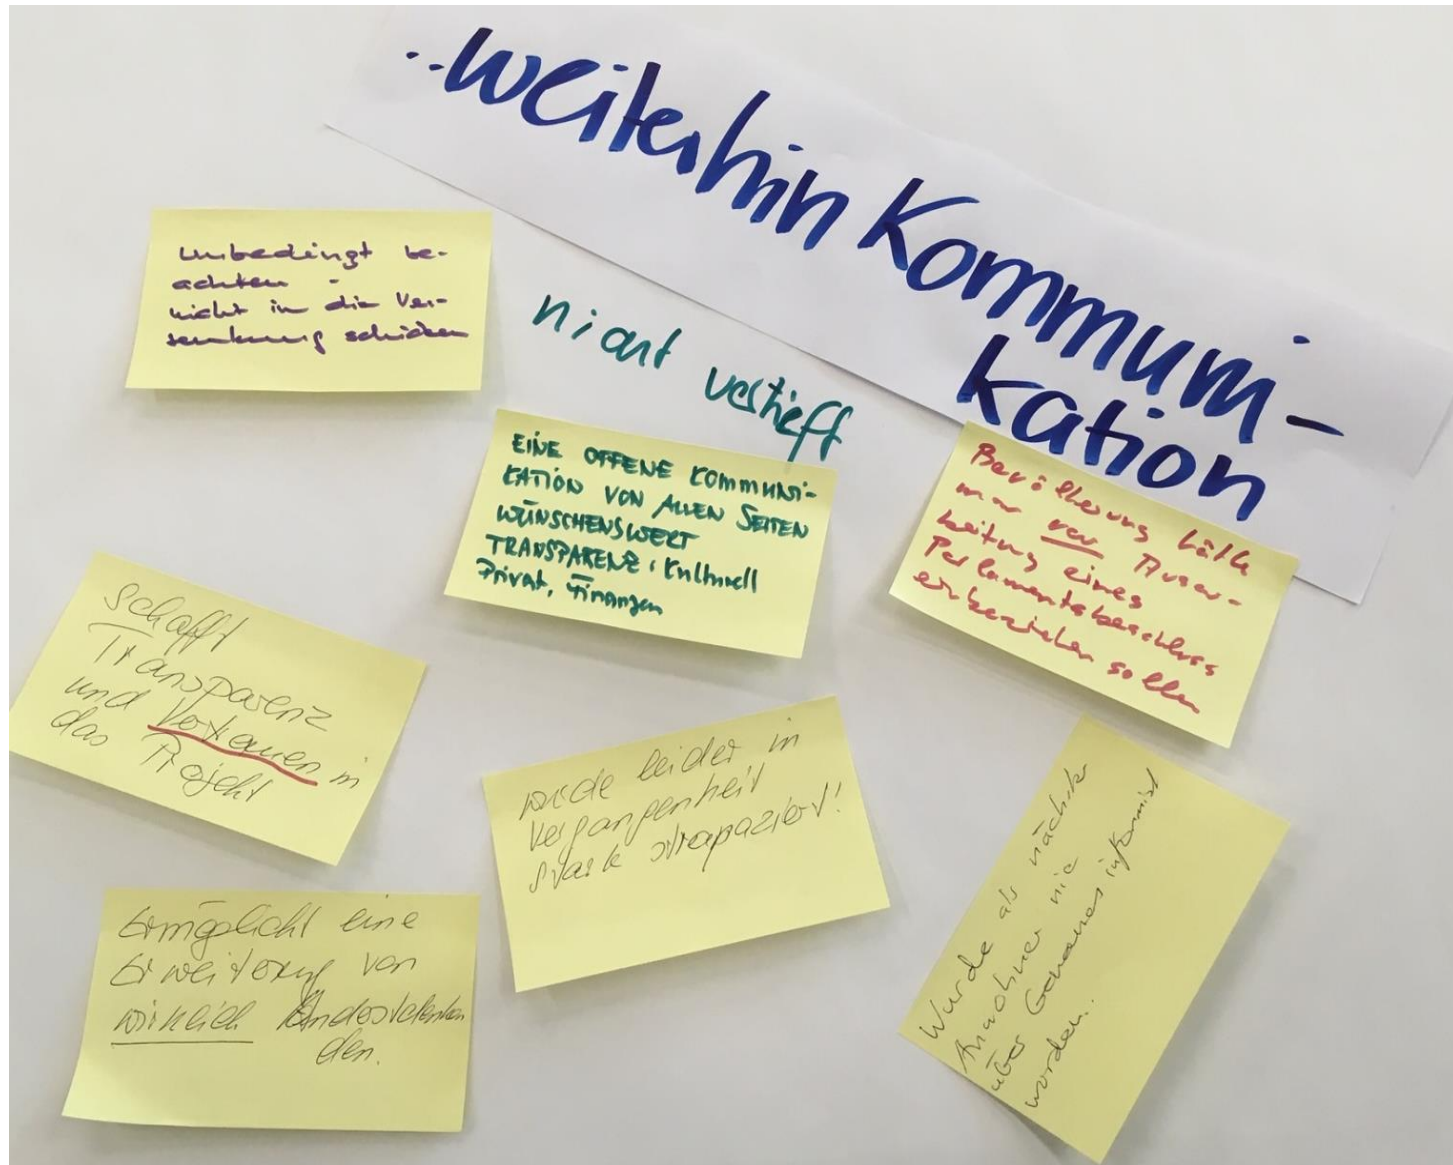 ..weiterhin Kommuni-
kation
unbedingt be-
achten -
nicht in die Ver-
senkung schicken
nicht vertieft
EINE OFFENE KOMMUNI-
KATION VON ALLEN SEITEN
WÜNSCHENSWERT
TRANSPARENZ: Kulturell
Privat, Finanzen
Bevölkerung hätte
man vor Ausar-
beitung eines
Parlamentsbeschluss
einbeziehen sollen
schafft
Transparenz
und Vertrauen in
das Projekt
wurde leider in
Vergangenheit
stark strapaziert!
Wurde als nächster
Anwohner nie
über Genaues informiert
worden.
Ermöglicht eine
Erweiterung von
wirklich
den.